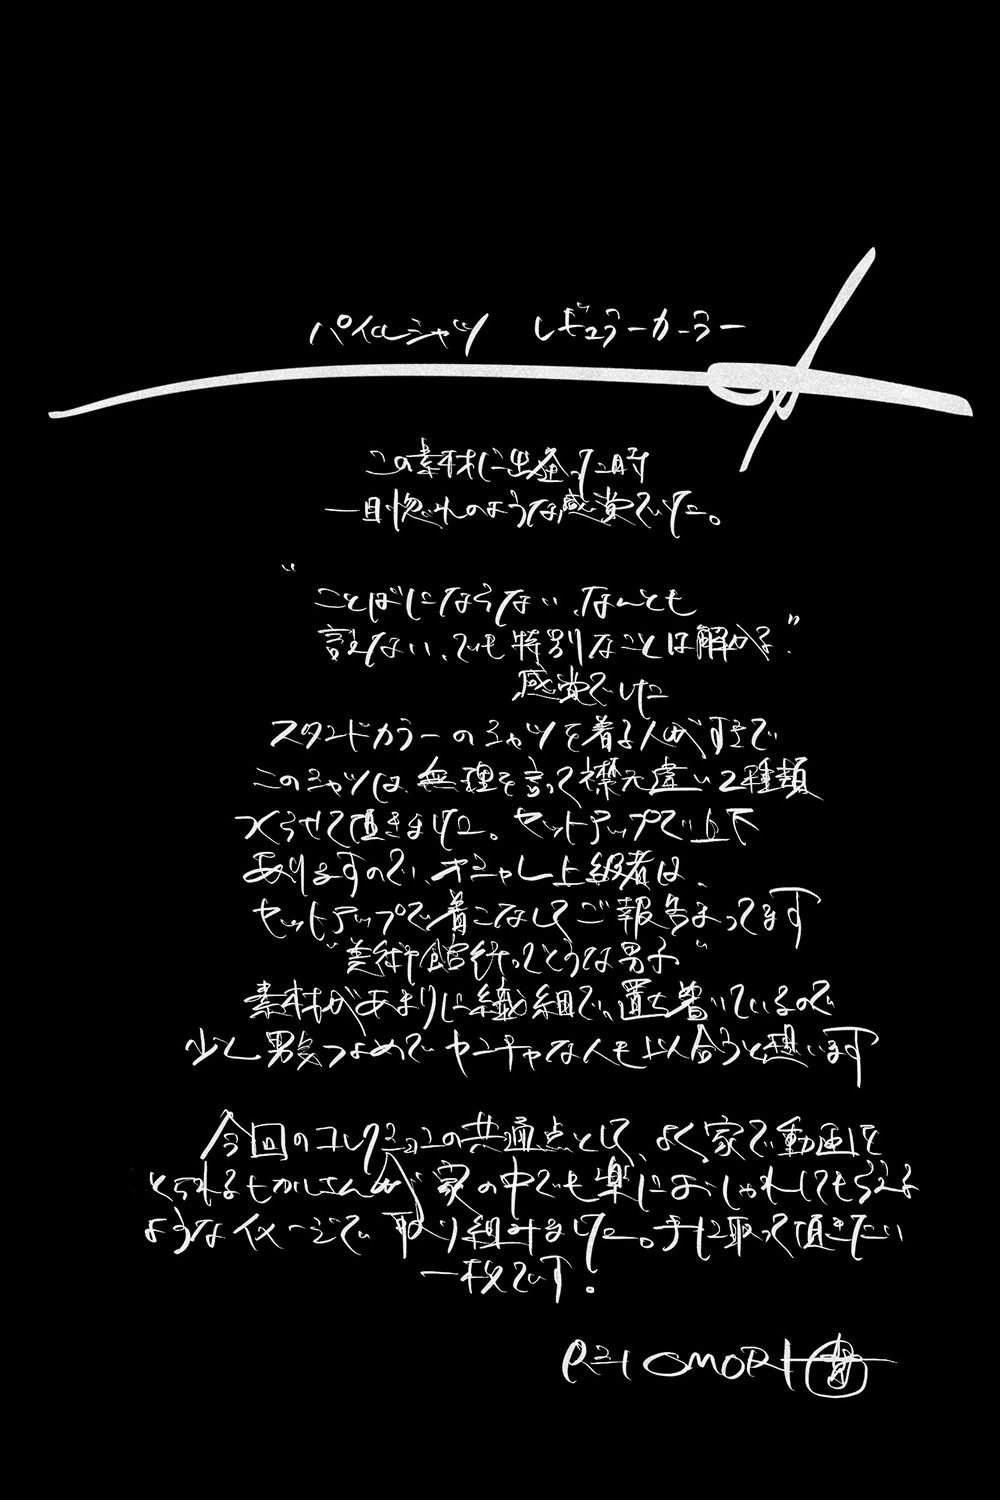 パイルシャツ レギュラーカーラー
この素材に出会った時
一目惚れのような感覚でした。
"ことばにならない、なんとも
言えない、でも特別なことは解かる"
感覚でした
スタンドカラーのシャツを着る人がすきで
このシャツは、無理を言って襟元違い2種類
つくらせて頂きました。セットアップで上下
ありますので、オシャレ上級者は、
セットアップで着こなしてご報告まってます
"美術館行ってそうな男子"
素材があまりに繊細で、落ち着いているので
少し男気つよめでヤンチャな人も似合うと思います
今回のコレクションの共通点として、よく家で動画を
とられるもかしさんが家の中でも楽におしゃれしてもらえる
ようなイメージで取り組みました。手に取って頂きたい
一枚です!
OMORI